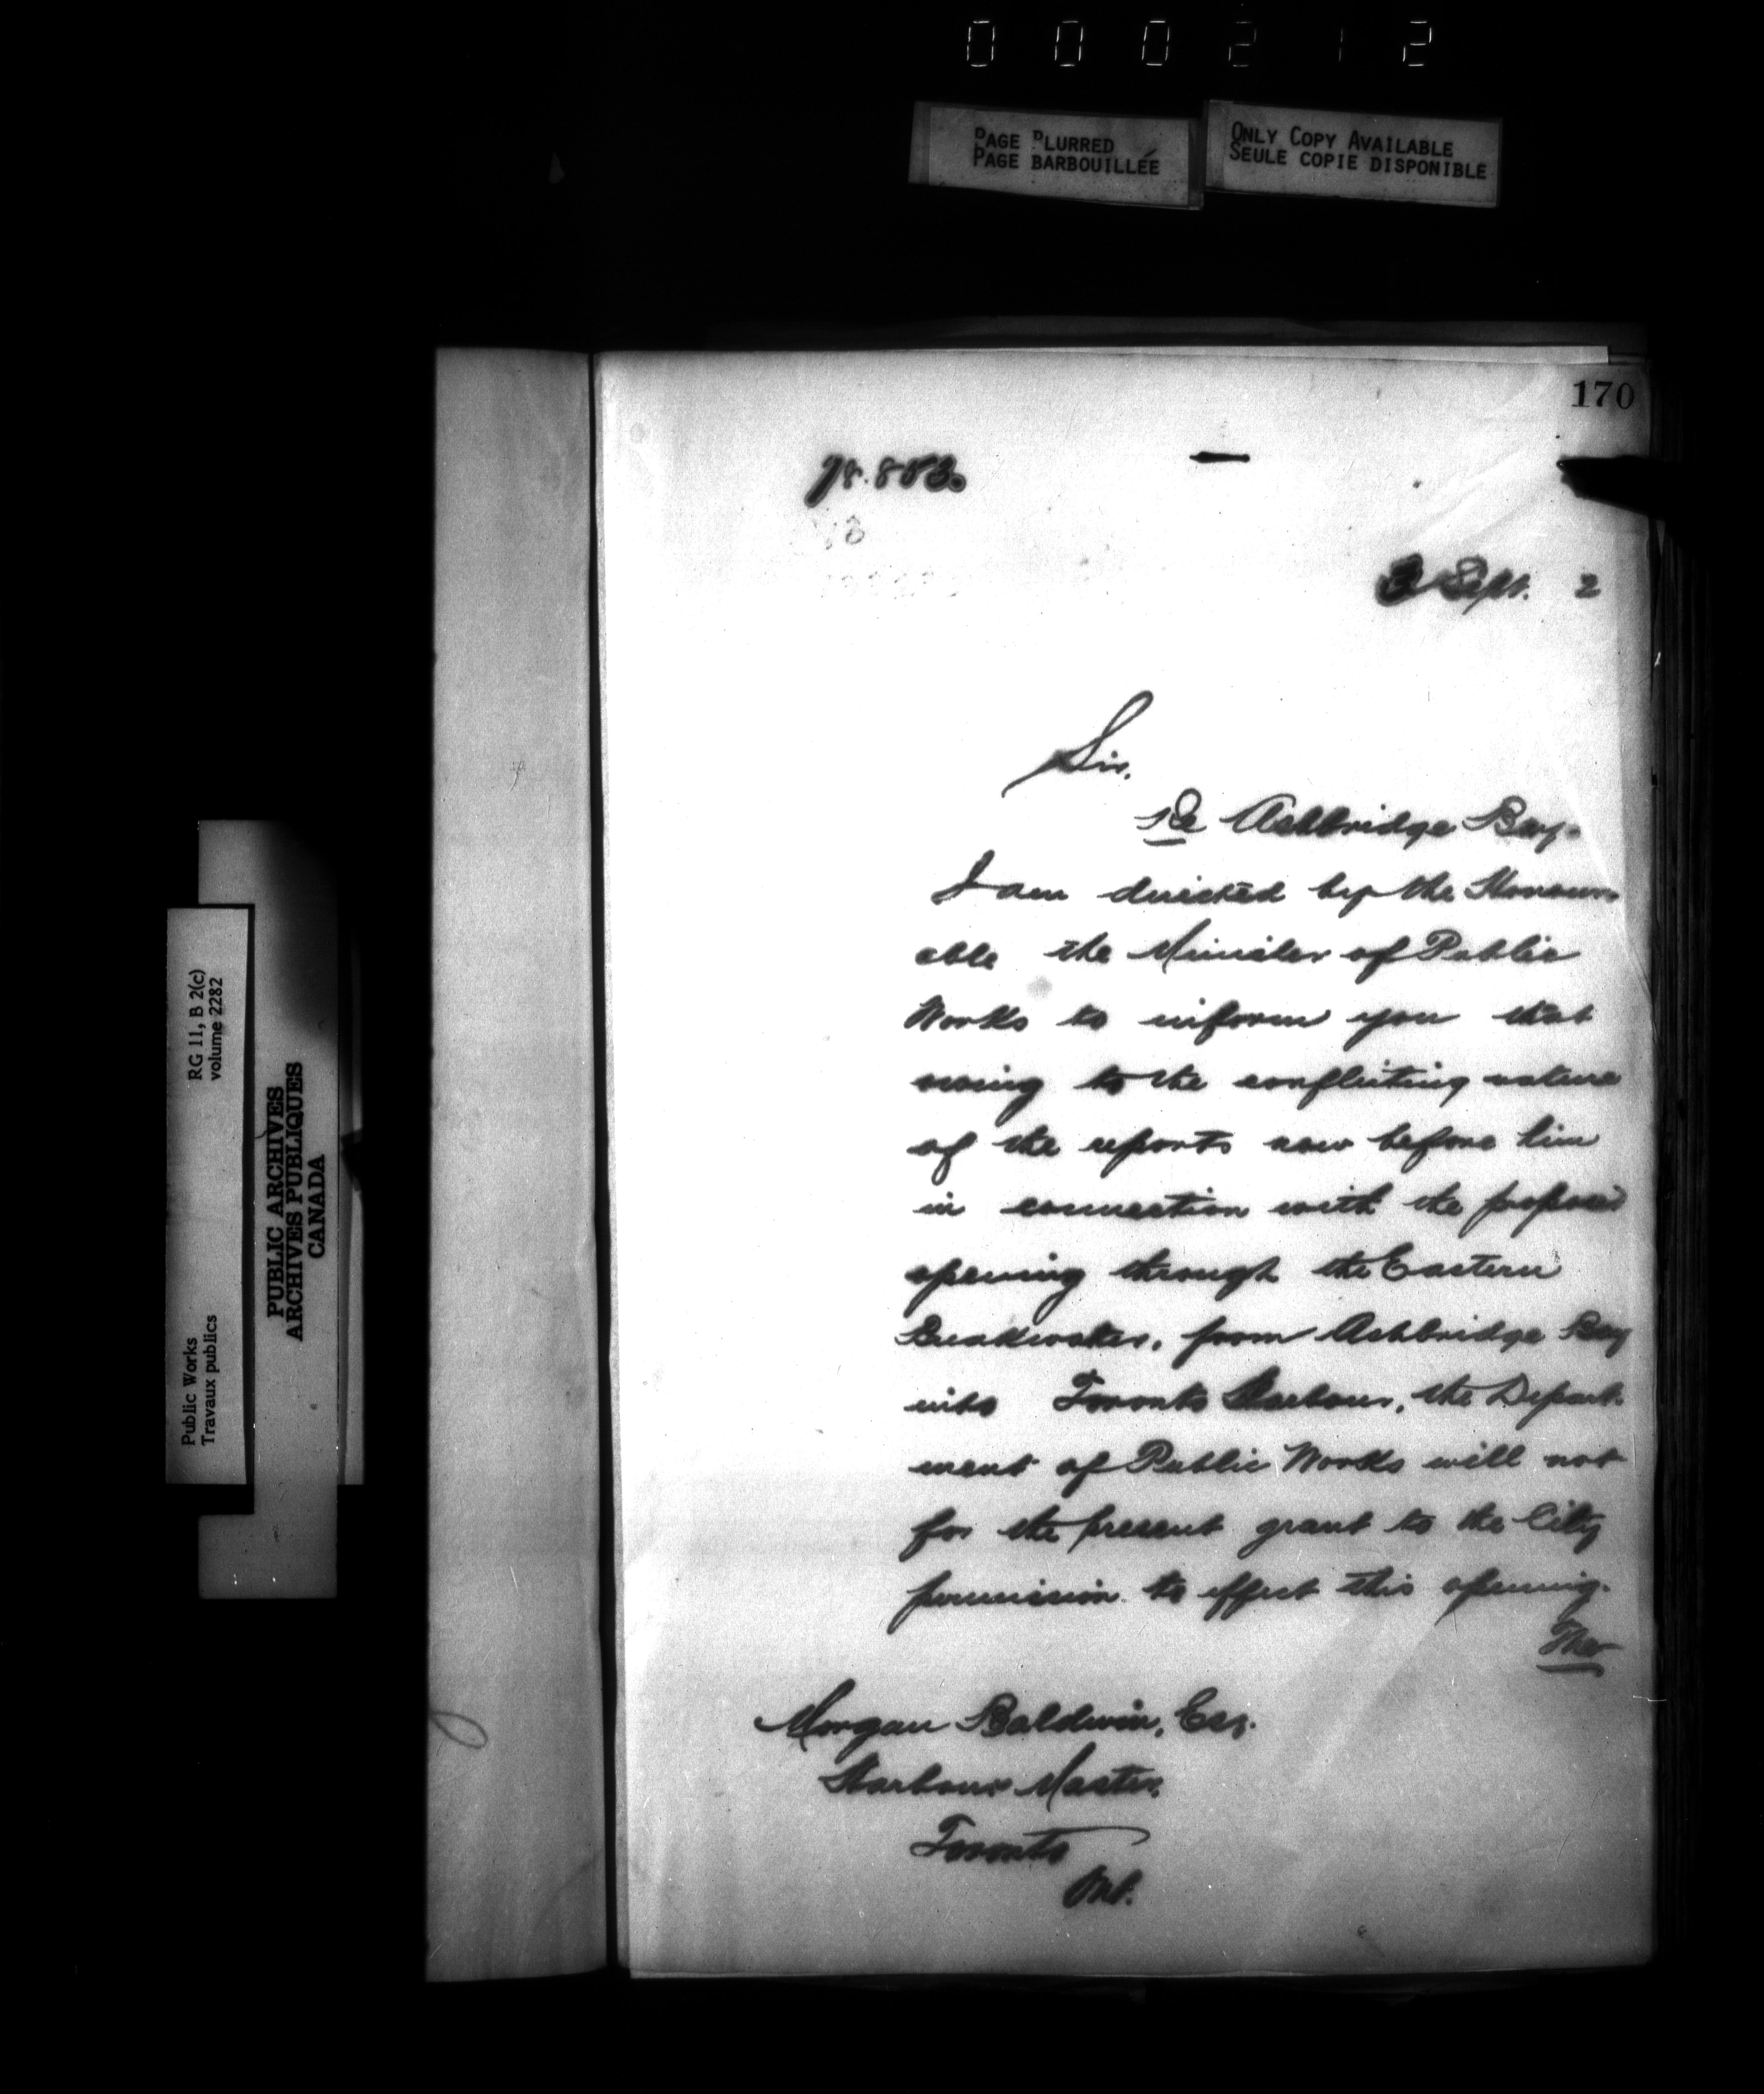 000212
PAGE BLURRED
PAGE BARBOUILLÉE
ONLY COPY AVAILABLE
SEULE COPIE DISPONIBLE
170
3 Sept. 2
Sir,
Re Ashbridge Bay.
I am directed by the Honour-
able the Minister of Public
Works to inform you that
owing to the conflicting nature
of the reports now before him
in connection with the proposed
opening through the Eastern
Breakwater, from Ashbridge Bay
into Toronto Harbour, the Depart-
ment of Public Works will not
for the present grant to the City
permission to effect this opening.
The
Morgan Baldwin, Esq.
Harbour Master,
Toronto
Ont.
RG 11, B 2(c)
volume 2282
Public Works
Travaux publics
PUBLIC ARCHIVES
ARCHIVES PUBLIQUES
CANADA